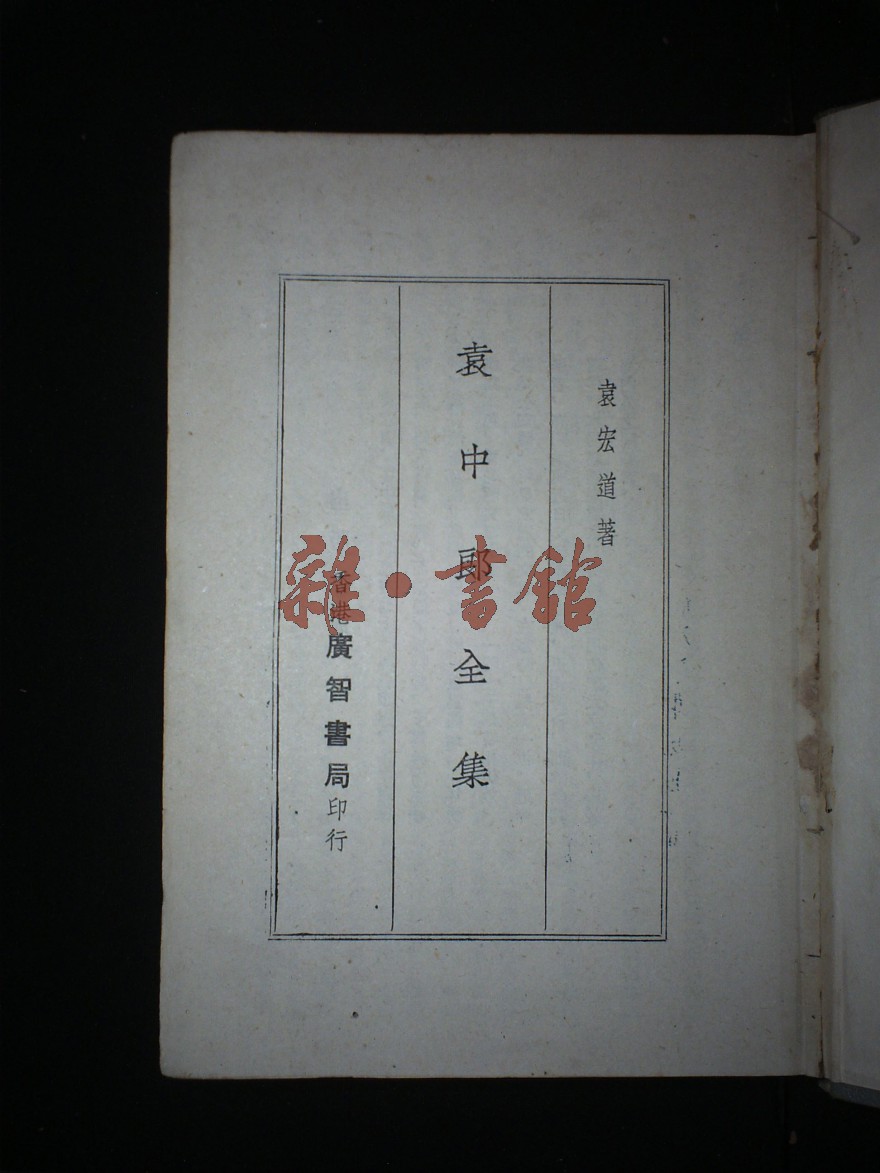 袁宏道著
袁中郎全集
香港廣智書局印行
雜·書館